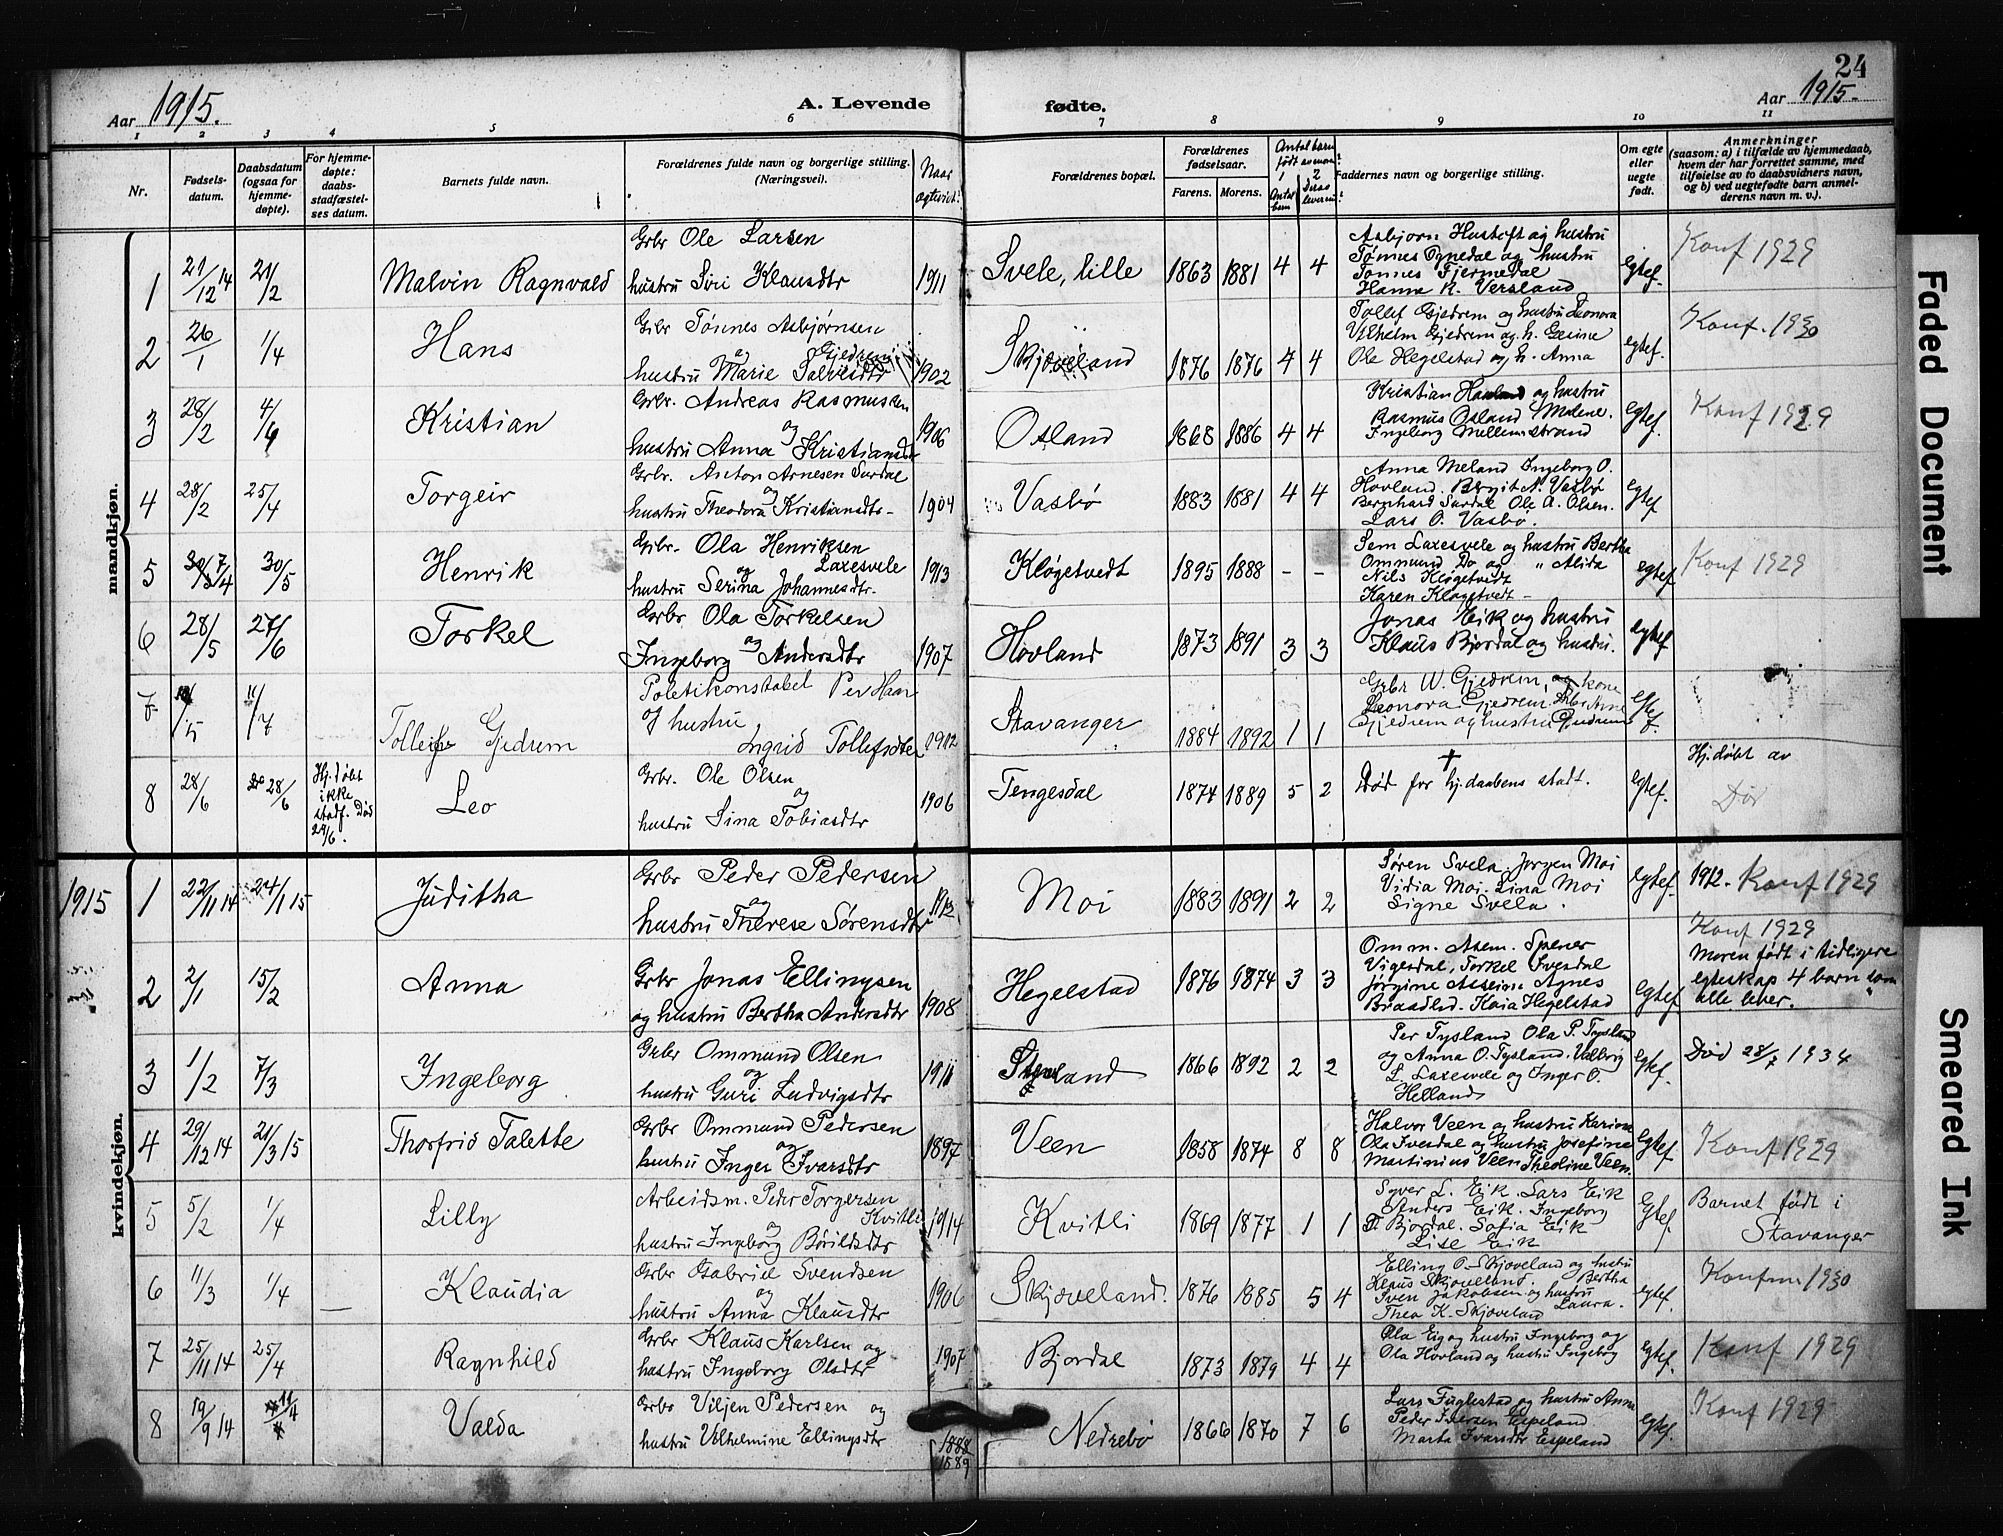 24
Aar 1915.
A. Levende
fødte.
Aar 1915.
1 2 3 4 5 6 7 8 9 10 11
Nr.
Fødselsdatum.
Daabsdatum (ogsaa for hjemmedøpte).
For hjemmedøpte: daabsstadfæstelses datum.
Barnets fulde navn.
Forældrenes fulde navn og borgerlige stilling. (Næringsvei).
Naar
Forældrenes bopæl.
Forældrenes fødselsaar.
Farens. Morens.
Antal barn
født
1 2
Antal barn
Faddernes navn og borgerlige stilling.
Om egte eller uegte født.
Anmerkninger
(saasom: a) i tilfælde av hjemmedaab, hvem der har forrettet samme, med tilføielse av to daabsvidners navn, og b) ved uegtefødte barn anmelderens navn m. v.).
mandkjøn.
1 21/12 14 21/2 Malvin Ragnvald
Grbr Ole Larsen
hustru Siri Klausdtr 1911
Svele, lille 1863 1881 4 4
Asbjørn Hustoft og hustru
Tønnes Ognedal og hustru
Tønnes Fjermedal
Hanne R. Versland
Egtef. Konf 1929
2 26/1 1/4 Hans
Grbr Tønnes Asbjørnsen
Gjedrem
og
hustru Marie Salvesdtr 1902
Skjøveland 1876 1876 4 4
Tollef Gjedrem og hustru Leonora
Vilhelm Gjedrem og h. Gurine
Ole Hegelstad og h. Anna
Egtef. Konf. 1930
3 28/2 4/4 Kristian
Grbr. Andreas Rasmussen
og
hustru Anna Kristiansdtr 1906
Osland 1868 1886 4 4
Kristian Hovland og hustru
Rasmus Osland Malene.
Ingeborg Mellemstrand
Egtef. Konf 1929
4 28/2 25/4 Torgeir
Grbr. Anton Arnesen Surdal
og
hustru Theodora Kristiansdtr. 1904
Vasbø 1883 1881 4 4
Anna Meland Ingeborg O.
Hovland. Bergit N. Vasbø
Bernhard Surdal Ole A. Olsen.
Lars O. Vasbø.
Egtef
5 7/4 30/5 Henrik
Grbr. Ola Henriksen
og Laxesvele
hustru Serina Johannesdtr. 1913
Kløgetvedt 1895 1888 - -
Sem Laxesvele og hustru Bertha
Ommund Do og " Alida
Nils Kløgetvedt
Karen Kløgetvedt
Egtef Konf 1929
6 28/5 27/6 Torkel
Grbr. Ola Torkelsen
og
Ingeborg Andersdtr 1907
Hovland 1873 1891 3 3
Jonas Eik og hustru
Klaus Bjordal og hustru.
Egtef
7 /5 11/7 Tolleif Gjedrem
Poletikonstabel Per Haar
og hustru
Ingrid Tollefsdtr 1912
Stavanger 1884 1892 1 1
Grbr W. Gjedrem, og kone
Leonora Gjedrem
Gjedrem og hustru Gjedrem
Egtef.
8 28/6 28/6
Hj.døbt
ikke
stadf. Død
29/6.
Leo
Grbr. Ole Olsen
og
hustru Sina Tobiasdtr 1906
Tengesdal 1874 1889 5 2
†
Død før hj.daabens stadf.
Egtef. Hj.døbt av
Død
kvindekjøn.
1915
1 22/11 14 24/1 15 Juditha
Grbr Peder Pedersen
og
hustru Therese Sørensdtr 1912
Moi 1883 1891 2 2
Søren Svela. Jørgen Moi
Vidia Moi. Lina Moi
Signe Svela.
Egtef. 1912. Konf 1929
2 2/1 15/2 Anna
Grbr Jonas Ellingsen
og hustru Bertha Andersdtr 1908
Hegelstad 1876 1874 3 3
Omm. Asem. Spener
Vigesdal, Torkel Ivesdal
Jørgine Asseim. Agnes
Braadlid. Kaia Hegelstad
Egtef
Konf 1929
Moren født i tidligere
egteskap 4 barn som
alle lever.
3 1/2 7/3 Ingeborg
Grbr Ommund Olsen
og
hustru Guri Ludvigsdtr 1911
1866 1892 2 2
Per Tysland Ola P. Tysland
og Anna O. Tysland. Valborg
L. Laxesvele og Inger O.
Helland
Egtef. Død 28/7 1934
4 29/12 14 21/3 15 Thorfrid Talette
Grbr Ommund Pedersen
og
hustru Inger Ivarsdtr 1897
Veen 1858 1874 8 8
Halvor Veen og hustru Karion
Ola Ivesdal og hustru Josefine
Martinius Veen Theoline Veen.
Egtef. Konf 1929
5 5/2 1/4 Lilly
Arbeidsm. Peder Torgersen
og Kvitli
hustru Ingeborg Børildsdtr 1914
Kvitli 1869 1877 1 1
Syver L. Eik. Lars Eik
Anders Eik. Ingeborg
T. Bjordal. Sofia Eik
Lise Eik
Egtef
Barnet født i
Stavanger
6 11/3 1/4 Klaudia
Grbr Gabriel Svendsen
og
hustru Anna Klausdtr 1906
Skjæveland. 1876 1885 5 4
Elling O. Skjøveland og hustru
Klaus Skjøveland. Bertha
Sven Jakobsen og hustru
Thea K. Skjøveland Laura.
Egtef. Konfmn 1930
7 25/11 14 25/4 Ragnhild
Grbr Klaus Karlsen og
hustru Ingeborg Olsdtr 1907
Bjordal 1873 1879 4 4
Ola Eig og hustru Ingeborg og
Ola Hovland og hustru Ingebog
Egtef. Konf 1929
8 19/9 14 11/4 Valda
Grbr Viljen Pedersen og
hustru Vilhelmine Ellingsdtr 1888
1889
Nedrebø 1866 1870 7 6
Lars Fuglestad og hustru Anna
Peder Iversen Espeland
Marta Ivarsdtr Espeland
Egtef. Konf 1929
Faded Document
Smeared Ink